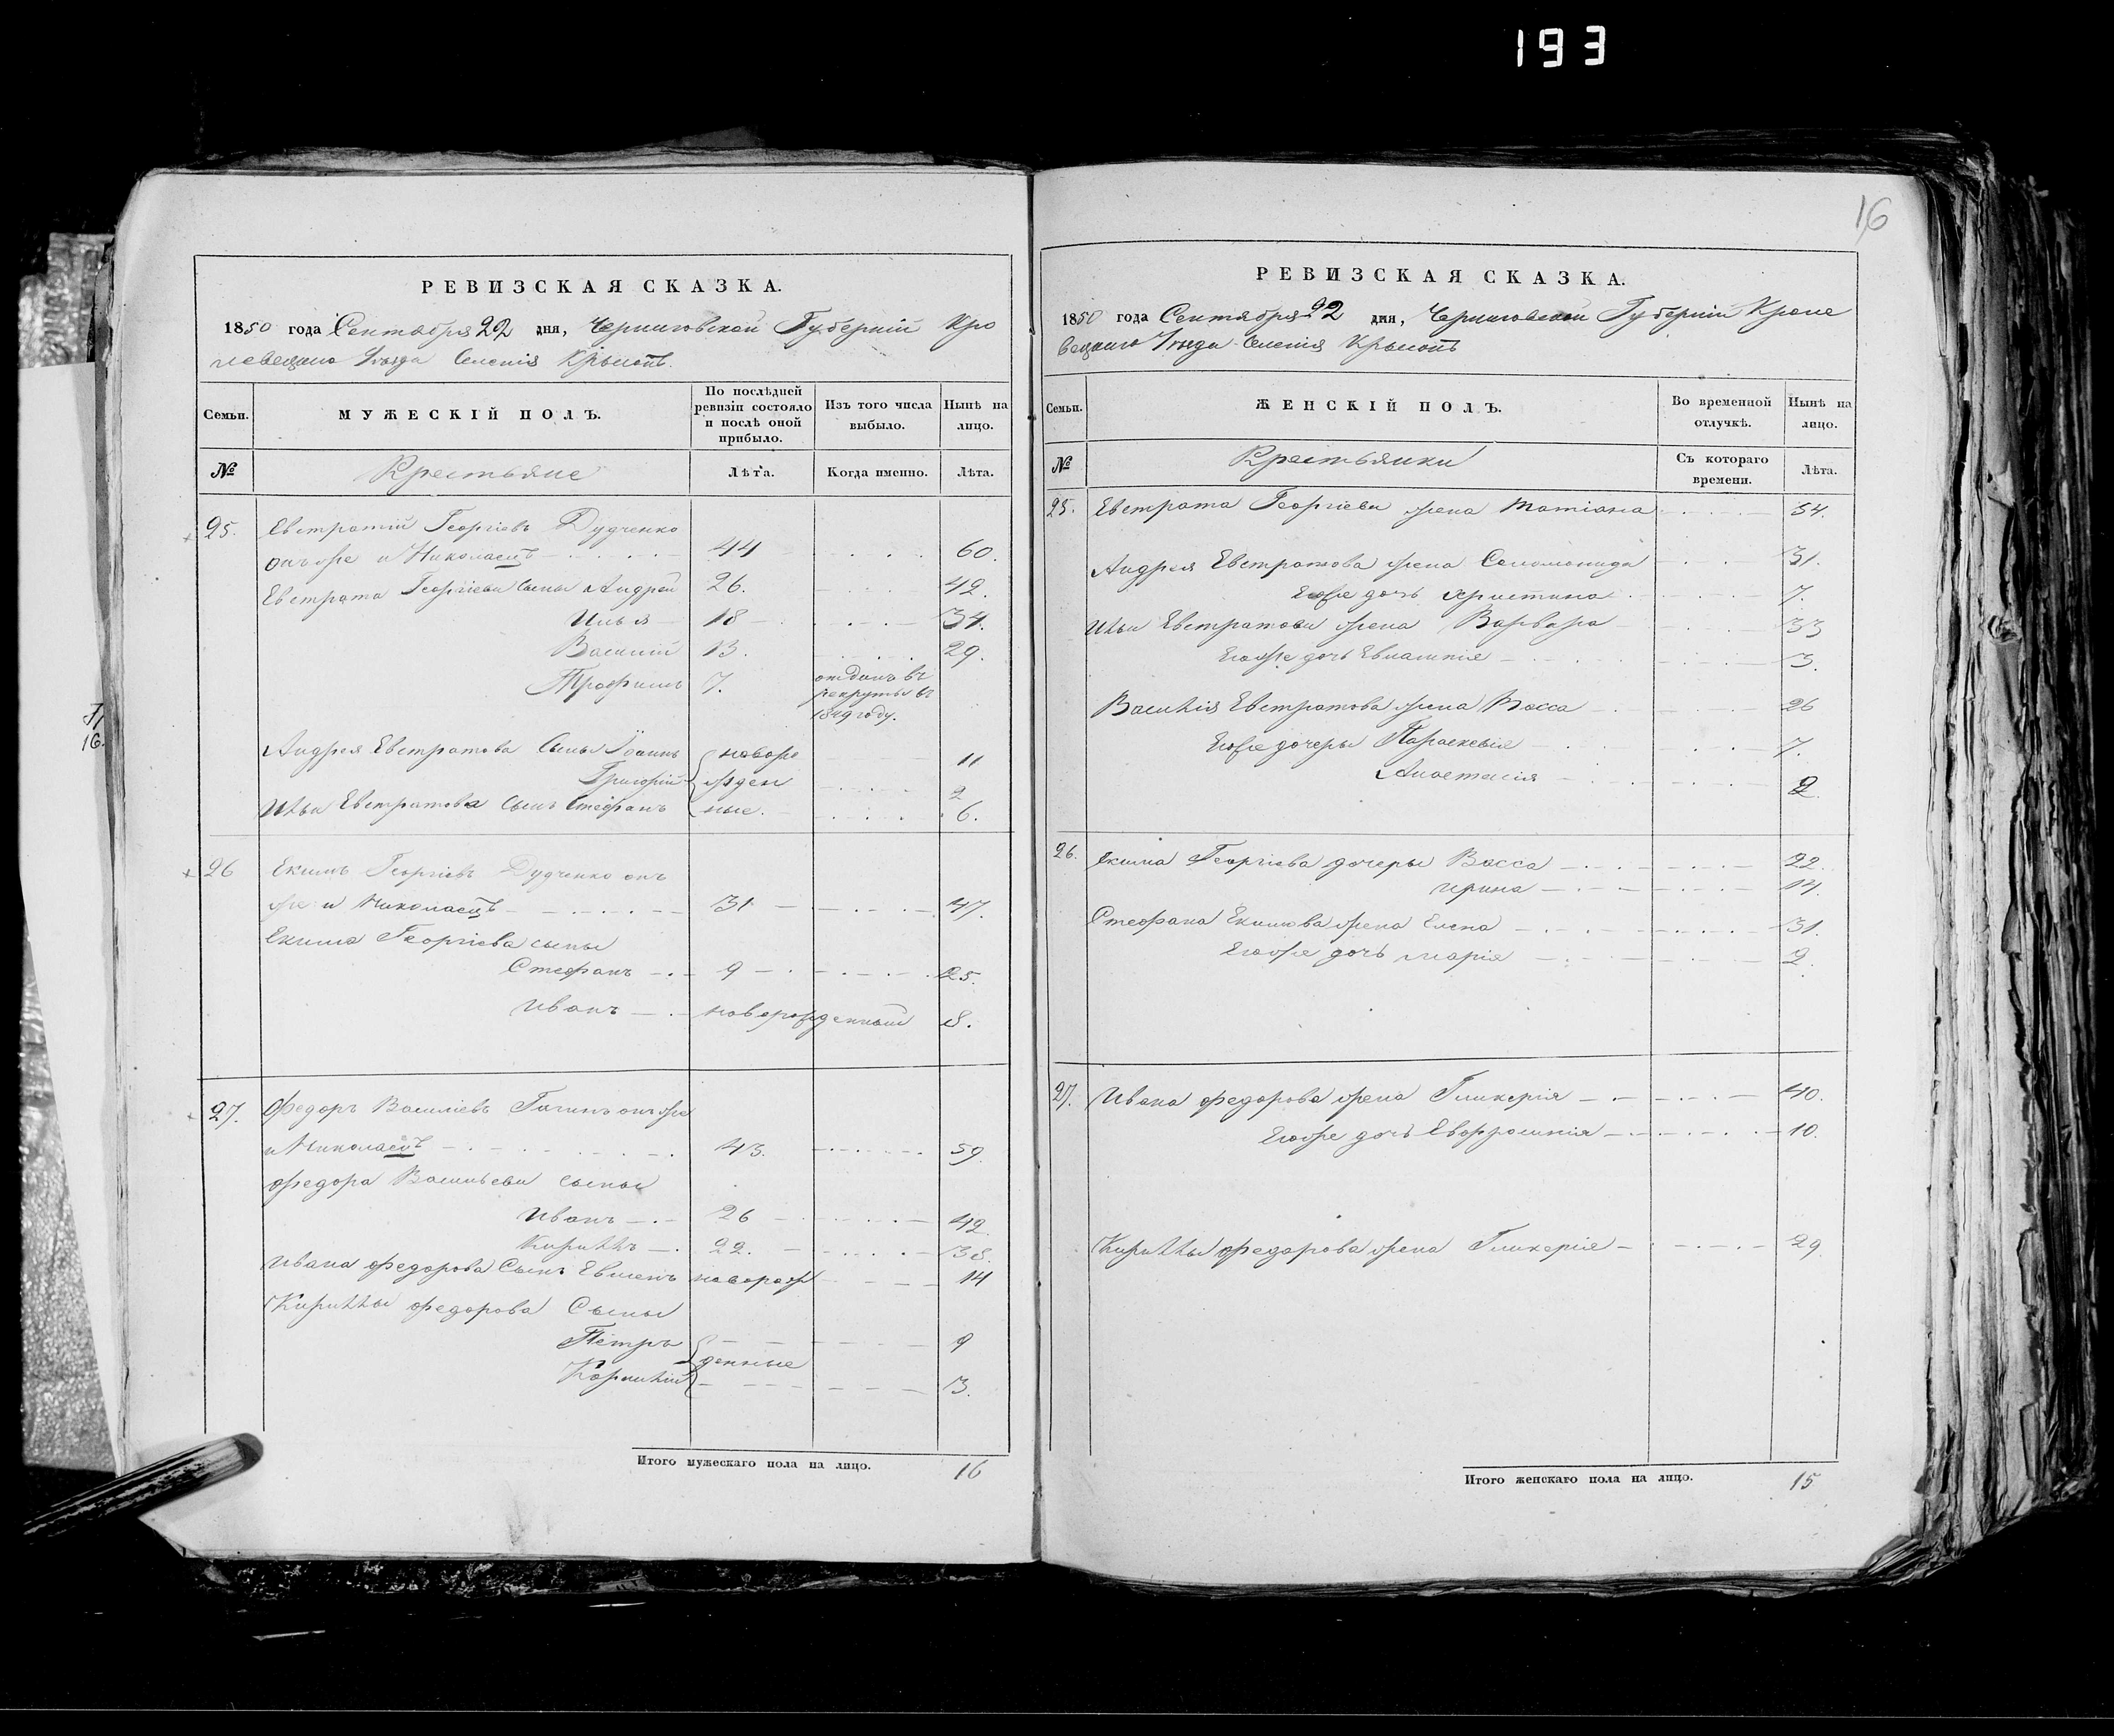 193
16
РЕВИЗСКАЯ СКАЗКА.
1850 года Сентября 22 дня, Черниговской Губерніи Кро
левецкаго Уезда Селенія
Семьи.
МУЖЕСКІЙ ПОЛЪ.
По послѣдней ревизіи состояло и послѣ оной прибыло.
Изъ того числа выбыло.
Нынѣ на лицо.
№
Крестьяне
Лѣта.
Когда именно.
Лѣта.
25. Евстратій Георгіевъ Дудченко
онъ же и Николаецъ 44 60.
Евстрата Георгіева сыны Андрей 26. 42.
Илья 18 34.
Василій 13. 29.
Трофимъ 7. отданъ въ
рекруты въ
1849 году.
Андрея Евстратова Сыны Іоаннъ новоро 11
Григорій жден 2
Ильи Евстратова сынъ Стефанъ ные. 6.
26 Екимъ Георгіевъ Дудченко онъ
же и Николаецъ 31 47.
Екима Георгіева сыны
Стефанъ 9 25.
Иванъ новорожденный 8.
27. Федоръ Василіевъ онъ же
и Николаецъ 43. 59.
Федора Васильева сыны
Иванъ 26 42
Кириллъ 22. 38.
Ивана Федорова Сынъ Евменъоворож 14
Кириллы Федорова Сыны
Петръ 9
денные
Корнилій 3.
Итого мужескаго пола на лицо. 16
РЕВИЗСКАЯ СКАЗКА.
1850 года Сентября 22 дня, Черниговской Губерніи Кроле
вецкаго Уезда Селенія
Семьи.
ЖЕНСКІЙ ПОЛЪ.
Во временной отлучкѣ.
Нынѣ на лицо.
№
Крестьянки
Съ котораго времени.
Лѣта.
25. Евстрата Георгіева жена Татіана 54.
Андрея Евстратова жена Соломонида 31.
Егоже дочь Христина 7.
Ильи Евстратова жена Варвара 33
Егоже дочь 3.
Василія Евстратова жена Васса 26
Егоже дочеры Параскевія 7.
Анастасія 2
26. Екима Георгіева дочеры Васса 22.
Ирина 14.
Стефана Екимова жена Елена 31.
Егоже дочь Марія 2.
27. Ивана Федорова жена Гликерія 40.
Егоже дочь Евфросинія 10.
Кириллы Федорова жена Гликерія 29.
Итого женскаго пола на лицо. 15